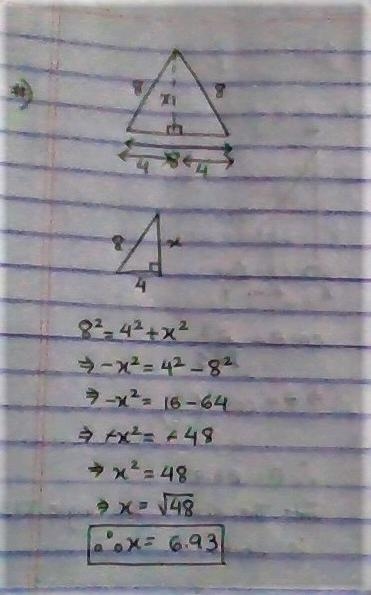 #)
8 x 8
4 8 4
8 x
4
8² = 4² + x²
⇒ -x² = 4² - 8²
⇒ -x² = 16 - 64
⇒ -x² = -48
⇒ x² = 48
⇒ x = √48
∴ x = 6.93